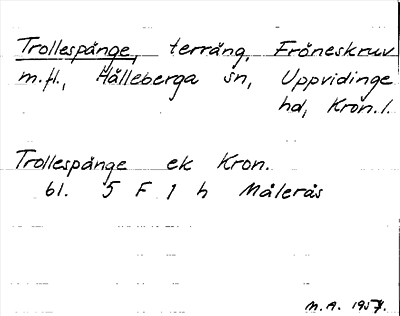 Trollespånge, terräng, Fröneskruv
m.fl., Hälleberga sn, Uppvidinge
hd, Kron.l.
Trollespånge ek Kron.
bl. 5 F 1 h Målerås
M.A. 1957.